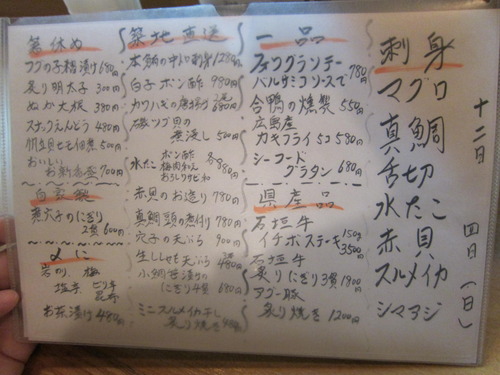 十二日
四日(日)
刺身
マグロ
真鯛
舌切
水たこ
赤貝
スルメイカ
シマアジ
一品
フォワグランテー
バルサミコソースで 780円
合鴨の燻製 550円
広島産
カキフライ5コ 580円
シーフード
グラタン 680円
県産品
石垣牛
イチボステーキ 150g 3500円
石垣牛
炙りにぎり3貫 1800円
アグー豚
炙り焼き 1200円
築地直送
本鮪の中の刺身 1280円
白子ポン酢 980円
カワハギの唐揚げ 680円
磯ツブ貝の
煮浸し 500円
水たこ ポン酢
梅肉和え
おろしワサビ和
各880円
赤貝のお造り 780円
真鯛頭の煮付け 780円
穴子の天ぷら 900円
生しらす天ぷら 480円
小鯛笹漬けの
にぎり4貫 680円
ミニスルメイカ干し
炙り焼き
箸休め
フグの子糟漬け 680円
炙り明太子 300円
ぬか大根 380円
スナックえんどう 480円
500円
おいしい
お新香盛 700円
煮穴子のにぎり
2貫 600円
〆に
岩のり 梅
塩辛
昆布
お茶漬け 480円